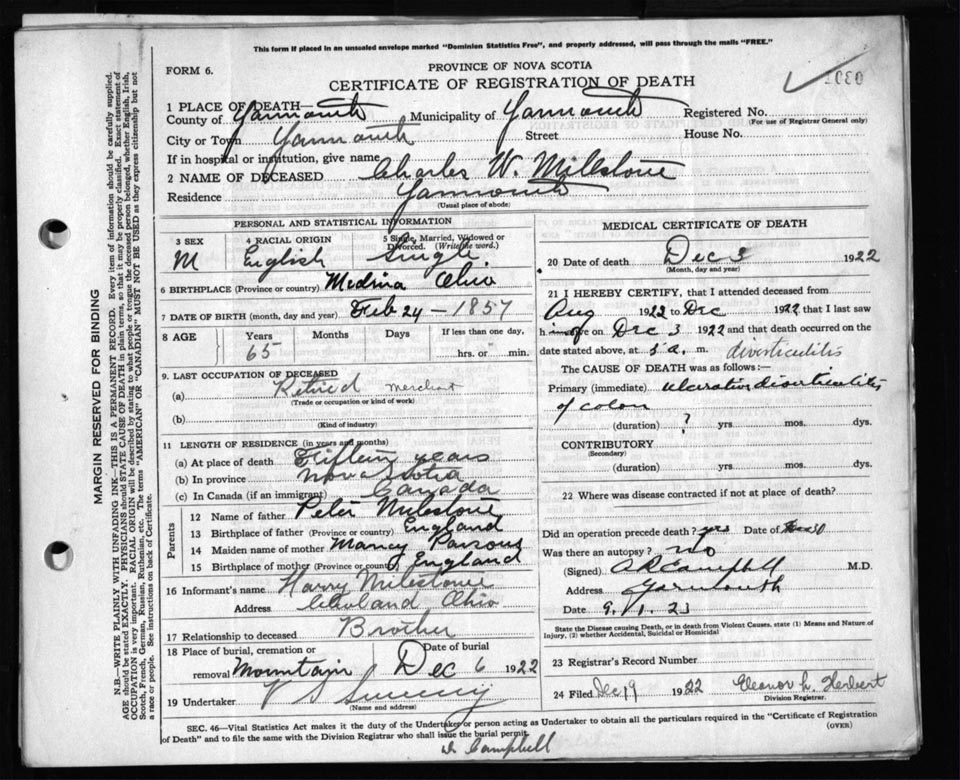 This form if placed in an unsealed envelope marked "Dominion Statistics Free", and properly addressed, will pass through the mails "FREE."
FORM 6.
PROVINCE OF NOVA SCOTIA
CERTIFICATE OF REGISTRATION OF DEATH
1 PLACE OF DEATH—
County of Yarmouth Municipality of Yarmouth Registered No.
(For use of Registrar General only)
City or Town Yarmouth Street House No.
If in hospital or institution, give name
2 NAME OF DECEASED Charles W. Millstone
Residence Yarmouth
(Usual place of abode)
MARGIN RESERVED FOR BINDING
N.B.—WRITE PLAINLY WITH UNFADING INK—THIS IS A PERMANENT RECORD. Every item of information should be carefully supplied.
AGE should be stated EXACTLY. PHYSICIANS should STATE CAUSE OF DEATH in plain terms, so that it may be properly classified. Exact statement of
OCCUPATION is very important. RACIAL ORIGIN will be described by stating to what people or tongue the deceased person belonged, whether English, Irish,
Scotch, French, German, Russian, Ruthenian, etc. The terms "AMERICAN" or "CANADIAN" MUST NOT BE USED as they express citizenship but not
a race or people. See instructions on back of Certificate.
PERSONAL AND STATISTICAL INFORMATION
3 SEX 4 RACIAL ORIGIN 5 Single, Married, Widowed or
Divorced. (Write the word.)
M English Single.
6 BIRTHPLACE (Province or country) Medina Ohio
7 DATE OF BIRTH (month, day and year) Feb 24 – 1857
8 AGE Years Months Days If less than one day,
65 hrs. or min.
9. LAST OCCUPATION OF DECEASED
(a) Retired merchant
(Trade or occupation or kind of work)
(b)
(Kind of industry)
11 LENGTH OF RESIDENCE (in years and months)
(a) At place of death Fifteen years
(b) In province Nova Scotia
(c) In Canada (if an immigrant) Canada
Parents
12 Name of father Peter Milestone
13 Birthplace of father (Province or country) England
14 Maiden name of mother Mancy Parsons
15 Birthplace of mother (Province or country) England
16 Informant's name Harry Milestone
Address Cleveland Ohio
17 Relationship to deceased Brother
18 Place of burial, cremation or Date of burial
removal Mountain Dec 6 1922
19 Undertaker V S Sweeny
(Name and address)
MEDICAL CERTIFICATE OF DEATH
20 Date of death Dec 3 1922
(Month, day and year)
21 I HEREBY CERTIFY, that I attended deceased from
Aug 1922 to Dec 1922 that I last saw
h alive on Dec 3 1922 and that death occurred on the
date stated above, at 5 a. m. diverticulitis
The CAUSE OF DEATH was as follows:—
Primary (immediate) ulcerative diverticulitis
of colon
(duration) ? yrs. mos. dys.
CONTRIBUTORY
(Secondary)
(duration) yrs. mos. dys.
22 Where was disease contracted if not at place of death?
Did an operation precede death? yes Date of
Was there an autopsy? no
(Signed) Campbell M.D.
Address Yarmouth
Date 9.1.23
State the Disease causing Death, or in death from Violent Causes, state (1) Means and Nature of
Injury, (2) whether Accidental, Suicidal or Homicidal
23 Registrar's Record Number
24 Filed Dec 19 1922 Eleanor L. Herbert
Division Registrar.
SEC. 46—Vital Statistics Act makes it the duty of the Undertaker or person acting as Undertaker to obtain all the particulars required in the "Certificate of Registration
of Death" and to file the same with the Division Registrar who shall issue the burial permit.
(OVER)
Dr Campbell